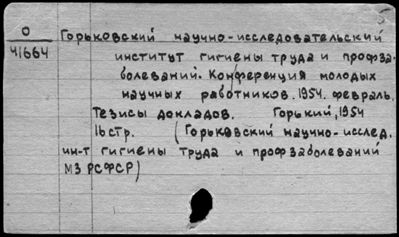 О Горьковский научно-исследовательский
41664 институт гигиены труда и профза-
болеваний. Конференция молодых
научных работников. 1954. февраль.
Тезисы докладов. Горький, 1954
16 стр. (Горьковский научно-исслед.
ин-т гигиены труда и профзаболеваний
МЗ РСФСР)